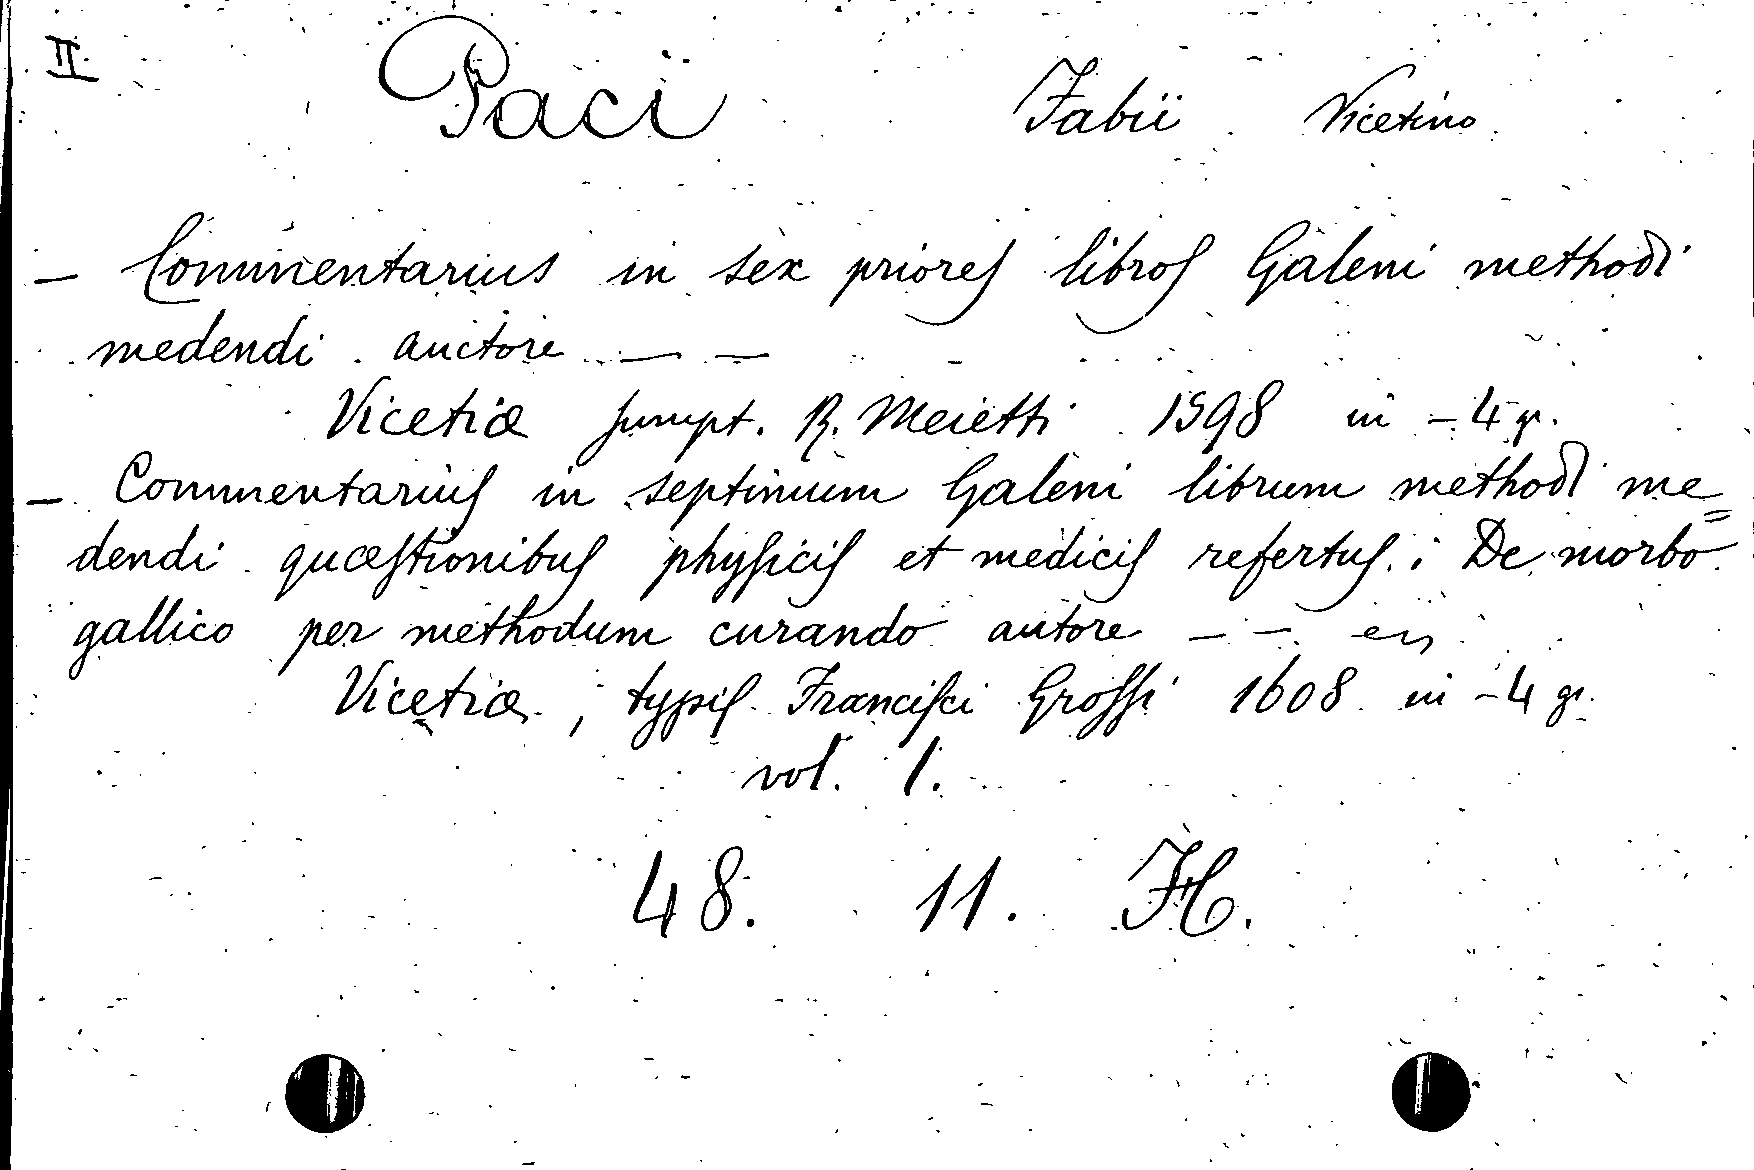 II. Paci Fabii Vicetino
– Commentarius in sex prioreſ libroſ Galeni methodi
medendi auctore — —
Vicetiæ ſumpt. R. Meietti 1598 in – 4 gr.
– Commentariuſ in septimum Galeni librum methodi me=
dendi quæſtionibuſ phyſiciſ et mediciſ refertuſ. : De morbo
gallico per methodum curando autore – –
Vicetiæ, typiſ Franciſci Groſſi 1608 in – 4 gr.
vol. 1.
48. 11. H.